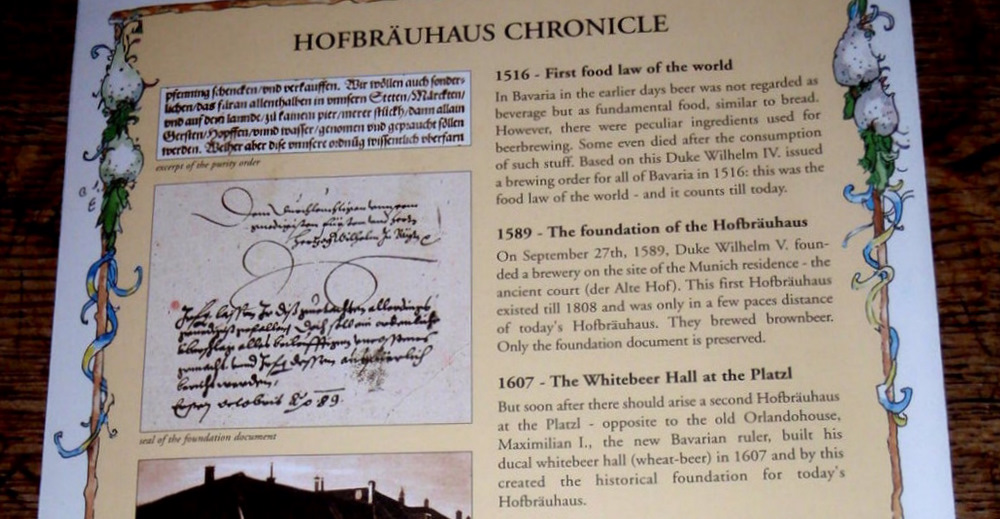 HOFBRÄUHAUS CHRONICLE
pfenning schencken/vnd verkauffen. Wir wöllen auch sonder-
lichen/das füran allenthalben in vnnsern Steten/Märckten/
vnd auf dem lannde/zu kainem pier/merer stückh/dann allain
Gersten/Hopffen/vnnd wasser/genomen vnd gepraucht söllen
werden. Welher aber dise vnnsere ordnūg wissentlich vberfarn
excerpt of the purity order
seal of the foundation document
1516 - First food law of the world
In Bavaria in the earlier days beer was not regarded as
beverage but as fundamental food, similar to bread.
However, there were peculiar ingredients used for
beerbrewing. Some even died after the consumption
of such stuff. Based on this Duke Wilhelm IV. issued
a brewing order for all of Bavaria in 1516: this was the
food law of the world - and it counts till today.
1589 - The foundation of the Hofbräuhaus
On September 27th, 1589, Duke Wilhelm V. foun-
ded a brewery on the site of the Munich residence - the
ancient court (der Alte Hof). This first Hofbräuhaus
existed till 1808 and was only in a few paces distance
of today's Hofbräuhaus. They brewed brownbeer.
Only the foundation document is preserved.
1607 - The Whitebeer Hall at the Platzl
But soon after there should arise a second Hofbräuhaus
at the Platzl - opposite to the old Orlandohouse,
Maximilian I., the new Bavarian ruler, built his
ducal whitebeer hall (wheat-beer) in 1607 and by this
created the historical foundation for today's
Hofbräuhaus.